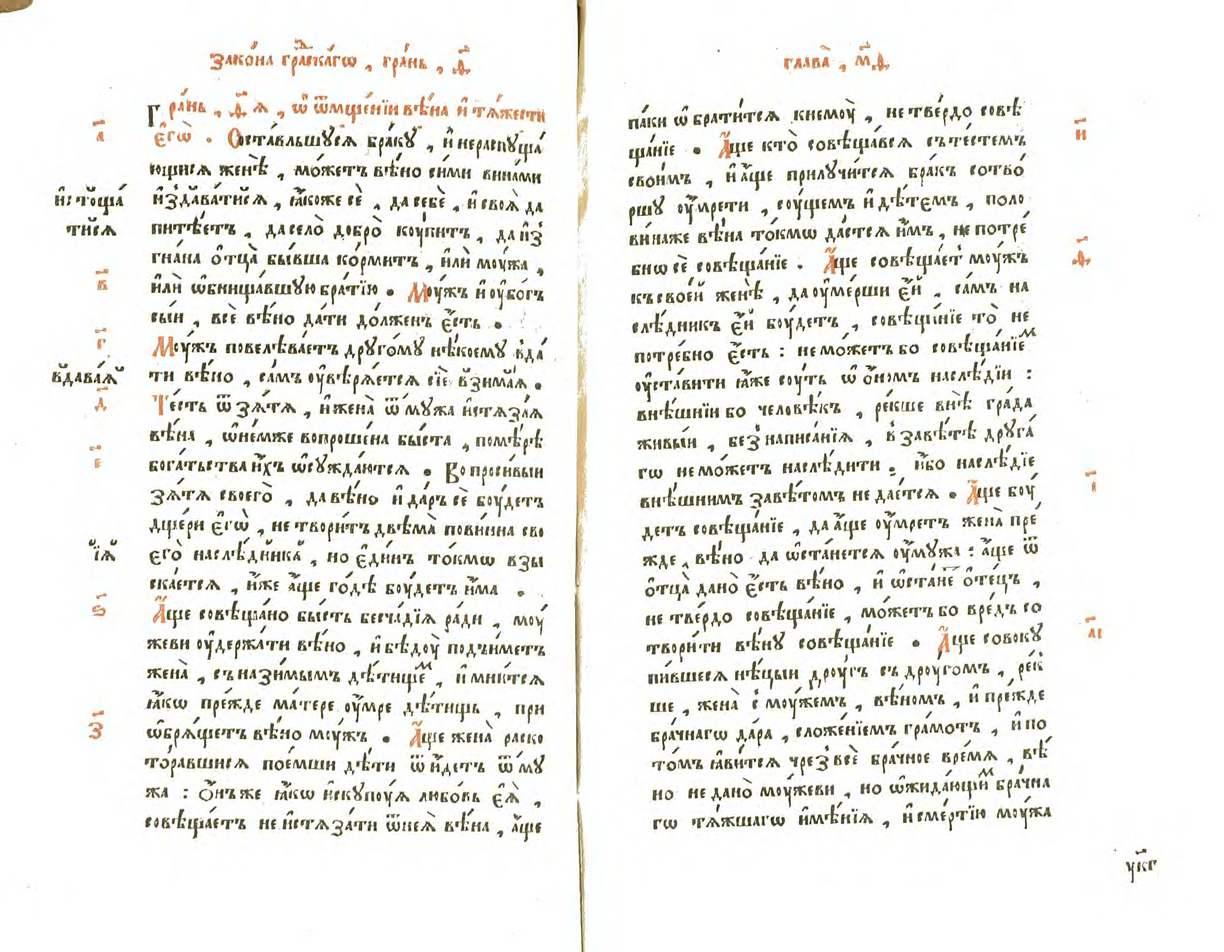 Зако́на гра́дскагѡ , гра́нь , ѳ҃
Гра́нь , ѳ҃ ѧ , ѡ҆ ѿмще́нїи вѣ́на и҆ тѧ́жести
а҃
є҆гѡ̀ . Ѡ҆ста́вльшусѧ бра́ку , и҆ нераспуща́
ющисѧ женѣ̀ , мо́жетъ вѣ́но си́ми вина́ми
и҆стоща́
тисѧ
и҆здава́тисѧ , ꙗ҆́коже сѐ , да себѐ , и҆ своѧ̀ да
пита́етъ , да село̀ добро̀ коу́питъ , да и҆з̾
гна́на ѻ҆тца̀ бы́вша ко́рмитъ , и҆лѝ моу́жа ,
в҃
и҆лѝ ѡ҆бнища́вшую бра́тїю . Моу́жъ и҆ оубо́гъ
сы́и , всѐ вѣ́но да́ти до́лженъ є҆́сть .
г҃
Моу́жъ повелѣва́етъ друго́му нѣ́коему вда́
вдава́ѧй
ти вѣ́но , са́мъ оу҆вѣрѧ́етсѧ сїѐ взима́ѧ .
д҃
Те́сть ѿ зѧ́тѧ , и҆ жена̀ ѿ му́жа и҆стѧза́ѧ
вѣ́на , ѡ҆не́мже вопроше́на бы́ста , помѣ́рѣ
е҃
бога́тьства и҆́хъ ѡ҆сужда́ютсѧ . Вопроси́выи
зѧ́тѧ своего̀ , да вѣ́но и҆ да́ръ сѐ боу́детъ
дще́ри є҆гѡ̀ , не твори́тъ двѣма̀ пови́нна сво
їѧ̀
его̀ наслѣ́дника , но є҆ди́нъ то́кмѡ взы
ска́етсѧ , и҆́же а҆́ще го́дѣ боу́детъ и҆́ма .
ѕ҃
А҆́ще совѣща́но бы́сть бесча́дїѧ ра́ди , моу́
жеви оу҆держа́ти вѣ́но , и҆ бѣдоу̀ подъи́метъ
жена̀ , съ назимы́мъ дѣ́тищемъ , и҆ мни́тсѧ
ꙗ҆́кѡ пре́жде ма́тере оу҆́мре дѣ́тищь , при
з҃
ѡ҆брѧ́щетъ вѣ́но моу́жъ . А҆́ще жена̀ раско
тора́вшисѧ пое́мши дѣ́ти ѿи́детъ ѿ му́
жа : Ѻ҆́нъ же ꙗ҆́кѡ и҆скупоу́ѧ любо́вь є҆ѧ̀ ,
совѣща́етъ не и҆стѧза́ти ѡ҆ неѧ̀ вѣ́на , а҆́ще
глава̀ , м҃ѳ
па́ки ѡ҆брати́тсѧ к немоу̀ , не тве́рдо совѣ
и҃
ща́нїе . А҆́ще кто̀ совѣща́всѧ съ те́стемъ
свои́мъ , и҆ а҆́ще прилучи́тсѧ бра́къ сотво́
ршу оу҆мре́ти , соу́щемъ и҆ дѣ́темъ , поло
ви́на же вѣ́на то́кмѡ да́стсѧ и҆̀мъ , не потре́
ѳ҃
бно сѐ совѣща́нїе . А҆́ще совѣща́етъ моу́жъ
къ свое́й женѣ̀ , да оу҆ме́рши є҆́й , са́мъ на
слѣ́дникъ є҆́й боу́детъ , совѣща́нїе то̀ не
потре́бно є҆́сть : не мо́жетъ бо совѣща́нїемъ
оу҆ста́вити ꙗ҆̀же соу́ть ѡ҆ ѻ҆́номъ наслѣ́дїи :
внѣ́шнїи бо человѣ́къ , ре́кше внѣ̀ гра́да
живы́и , без̾ написа́нїѧ , в завѣ́тѣ друга́
гѡ не мо́жетъ наслѣ́дити . и҆́бо наслѣ́дїе
і҃
внѣ́шнимъ завѣ́томъ не да́стсѧ . А҆́ще боу́
детъ совѣща́нїе , да а҆́ще оу҆́мретъ жена̀ пре́
жде , вѣ́но да ѡ҆ста́нетсѧ оу҆ му́жа : а҆́ще ѿ
ѻ҆тца̀ дано̀ є҆́сть вѣ́но , и҆ ѡ҆ста́не ѻ҆те́цъ ,
не тве́рдо совѣща́нїе , мо́жетъ бо вре́дъ со
а҃і
твори́ти вѣ́ну совѣща́нїе . А҆́ще совоку́
пи́вшесѧ нѣ́цыи дроу́гъ съ дроу́гомъ , ре́к
ше , жена̀ с моу́жемъ , вѣ́номъ , и҆ пре́жде
бра́чнагѡ да́ра , сложе́нїемъ гра́мотъ , и҆ по
то́мъ ꙗ҆ви́тсѧ чрез̾ всѐ бра́чное вре́мѧ , вѣ́
но не дано̀ моу́жеви , но ѡ҆жида́ющимъ бра́чна
гѡ тѧ́жшагѡ и҆мѣ́нїѧ , и҆ сме́ртїю моу́жа
ѵ҃кг